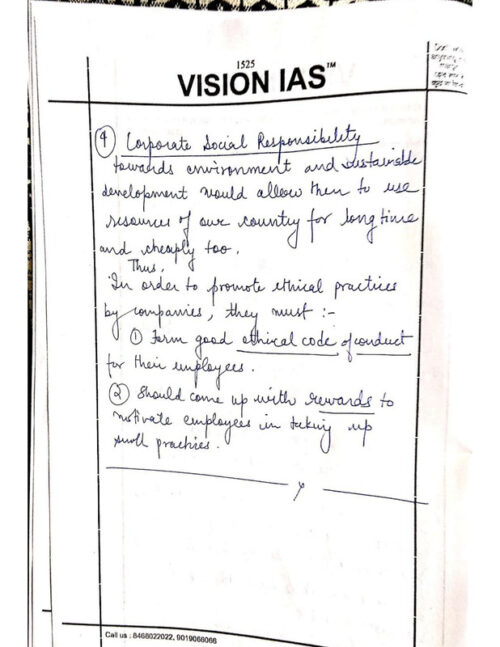 1525
VISION IAS™
④ Corporate Social Responsibility
towards environment and sustainable
development would allow them to use
resources of our country for long time
and cheaply too.
Thus,
In order to promote ethical practices
by companies, they must :-
① Form good ethical code of conduct
for their employees.
② Should come up with rewards to
motivate employees in taking up
such practies.
Call us : 8468022022, 9019066066